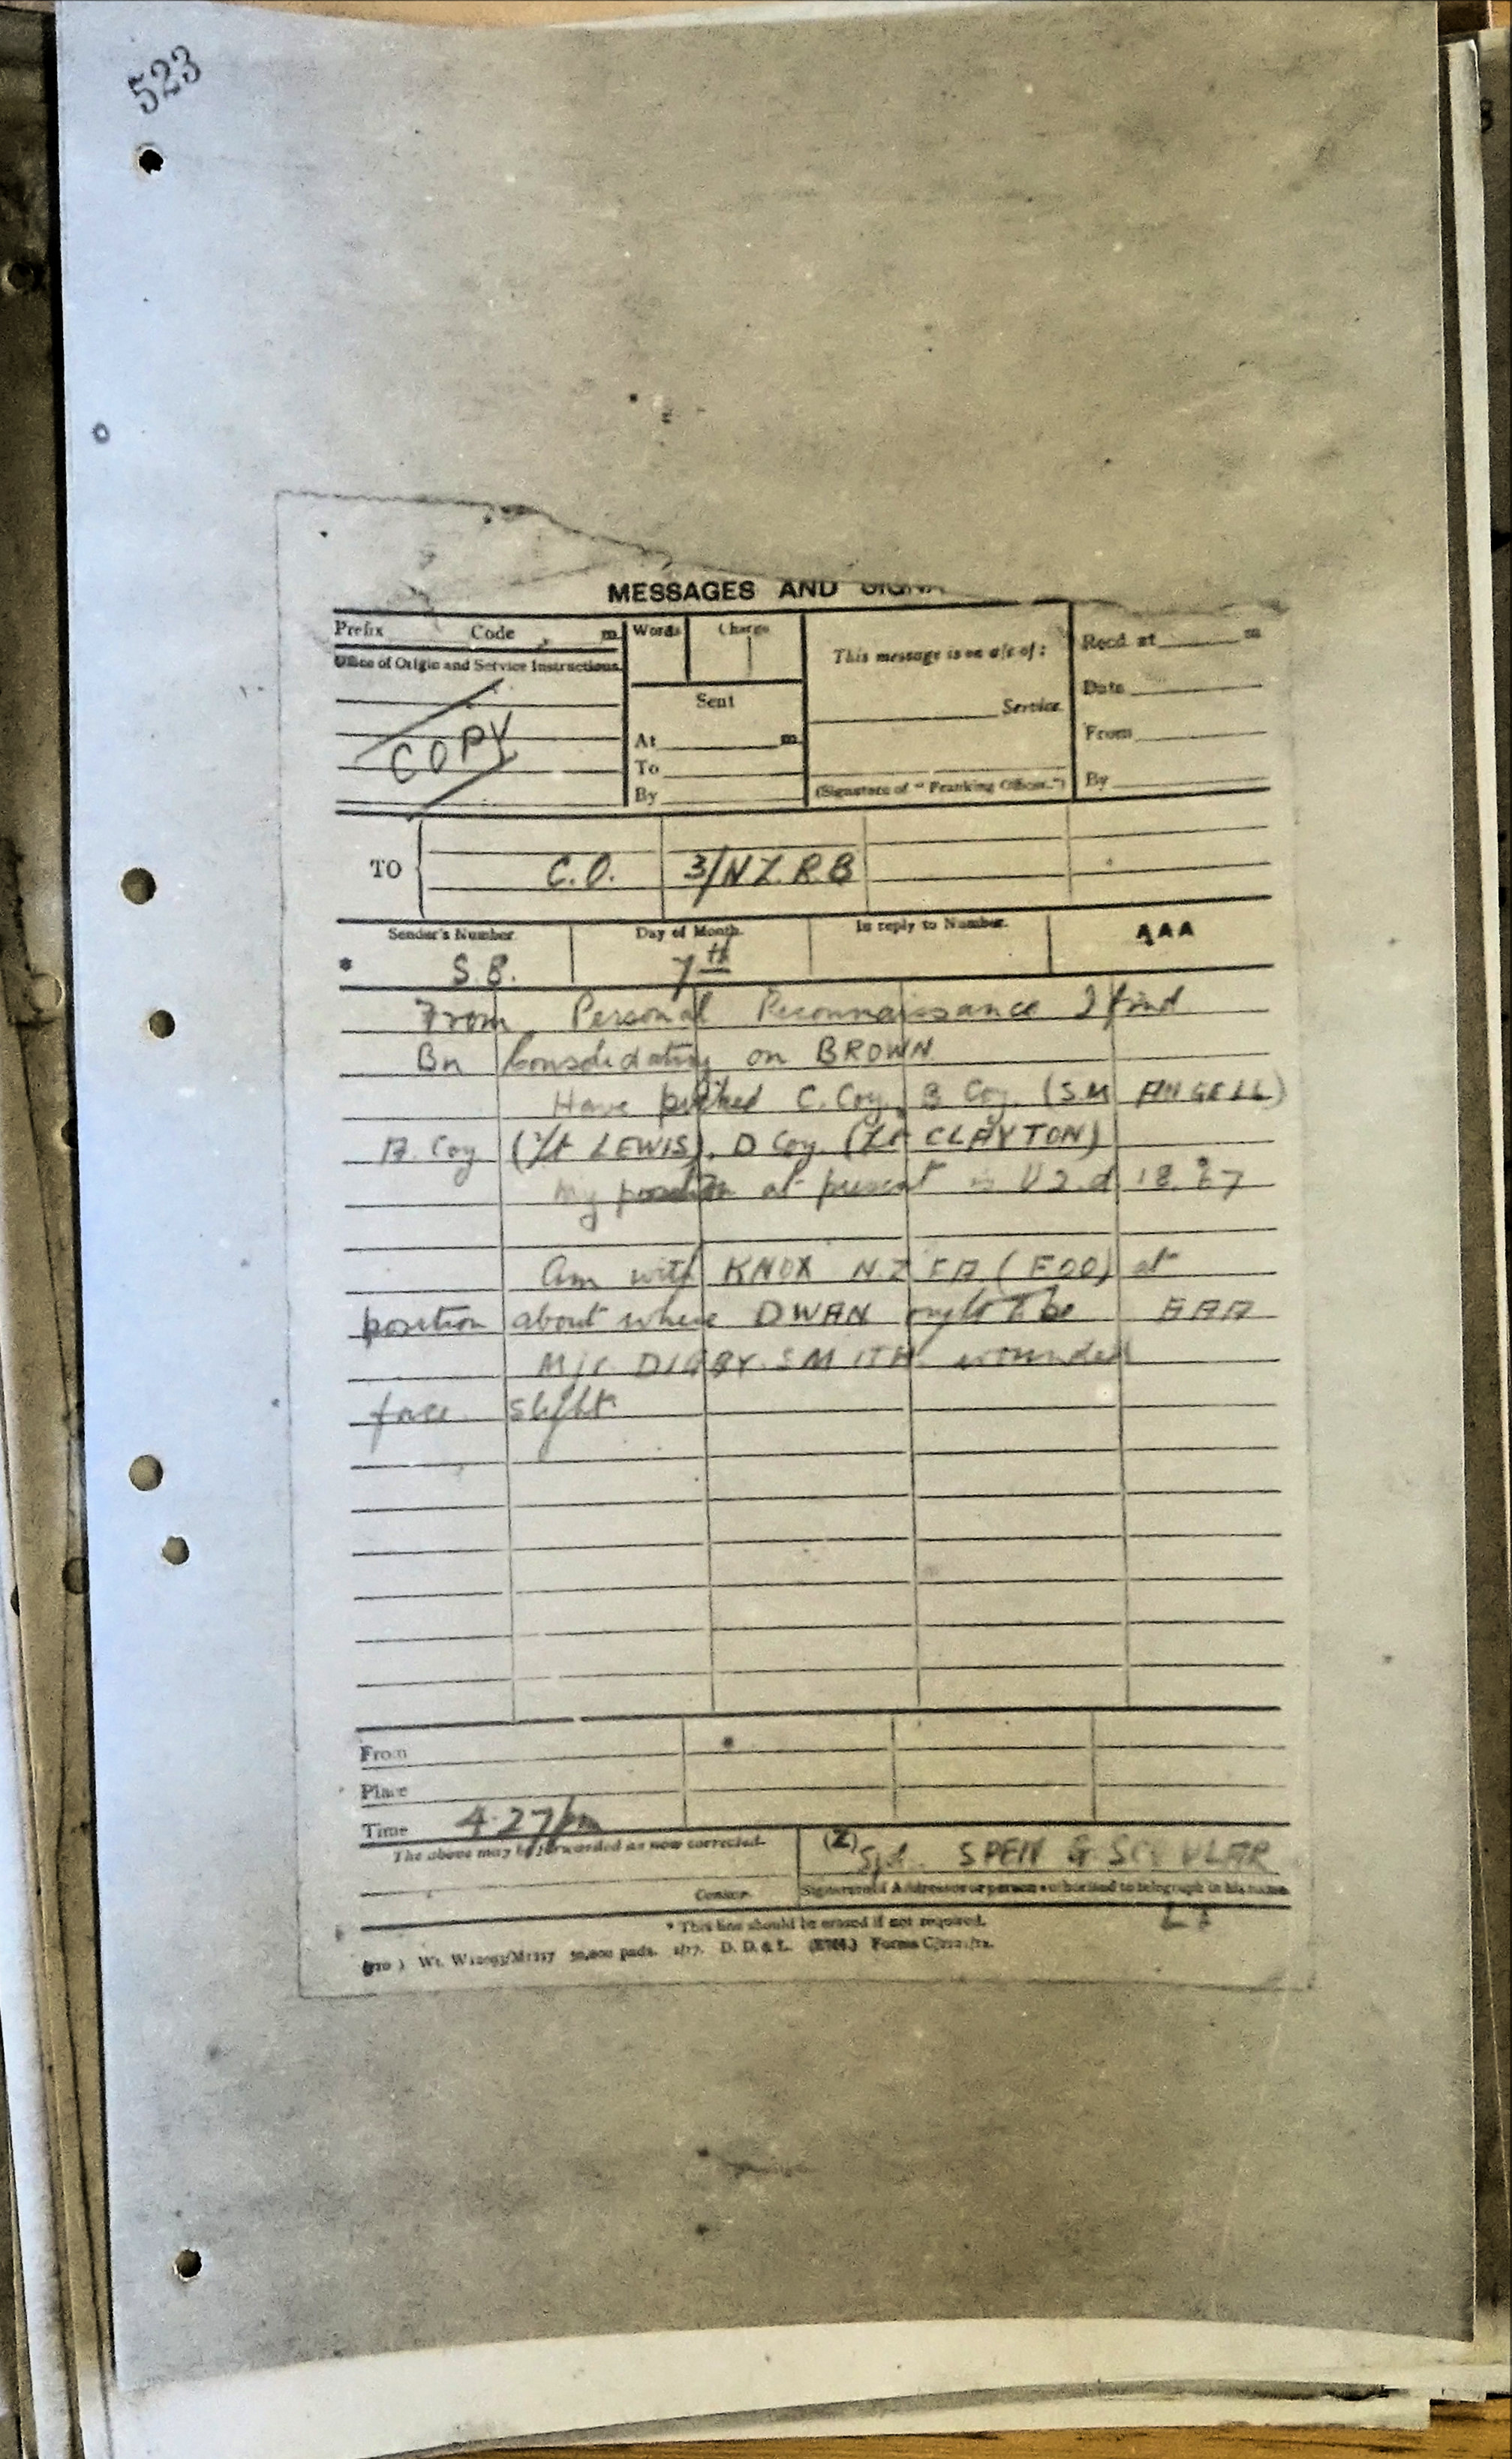 523
MESSAGES AND SIGNA
Prefix Code m Words Charge
This message is on a/c of:
Recd. at m
Office of Origin and Service Instructions.
Sent
Date
Service.
COPY
At m.
From
To
(Signature of "Franking Officer.")
By
By
TO C.O. 3/N.Z.R.B
Sender's Number. Day of Month. In reply to Number. AAA
* S.B. 7th
From Personal Reconnaissance I find
Bn Consolidating on BROWN
Have C. Coy, B Coy. (S.M ANGELL)
A. Coy (2/Lt LEWIS), D Coy. (Lt CLAYTON)
My position at present is U 2.d. 18.
Am with KNOX N.Z FA. (FOO) at
position about where DWAN ought to be AAA
Mjr. DIGBY-SMITH wounded
face. slight
From
Place
Time 4.27 pm
The above may be forwarded as now corrected. (Z) Sgd.
Censor. Signature of Addressor or person authorised to telegraph in his name.
* This line should be erased if not required. Lt
pads. 1/17. D. D. & L. Forms